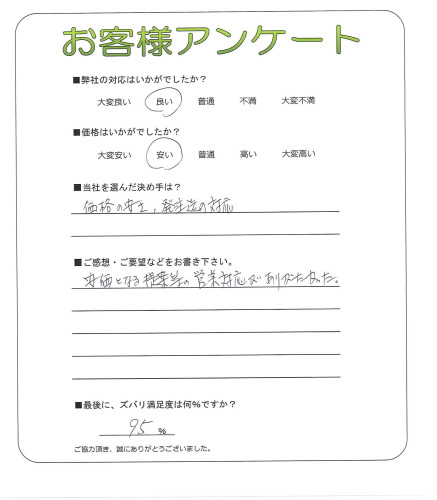 お客様アンケート
■弊社の対応はいかがでしたか？
大変良い 良い 普通 不満 大変不満
■価格はいかがでしたか？
大変安い 安い 普通 高い 大変高い
■当社を選んだ決め手は？
価格の安さ、発注迄の対応
■ご感想・ご要望などをお書き下さい。
安価となる提案等の営業対応がありがたかった。
■最後に、ズバリ満足度は何％ですか？
95 ％
ご協力頂き、誠にありがとうございました。